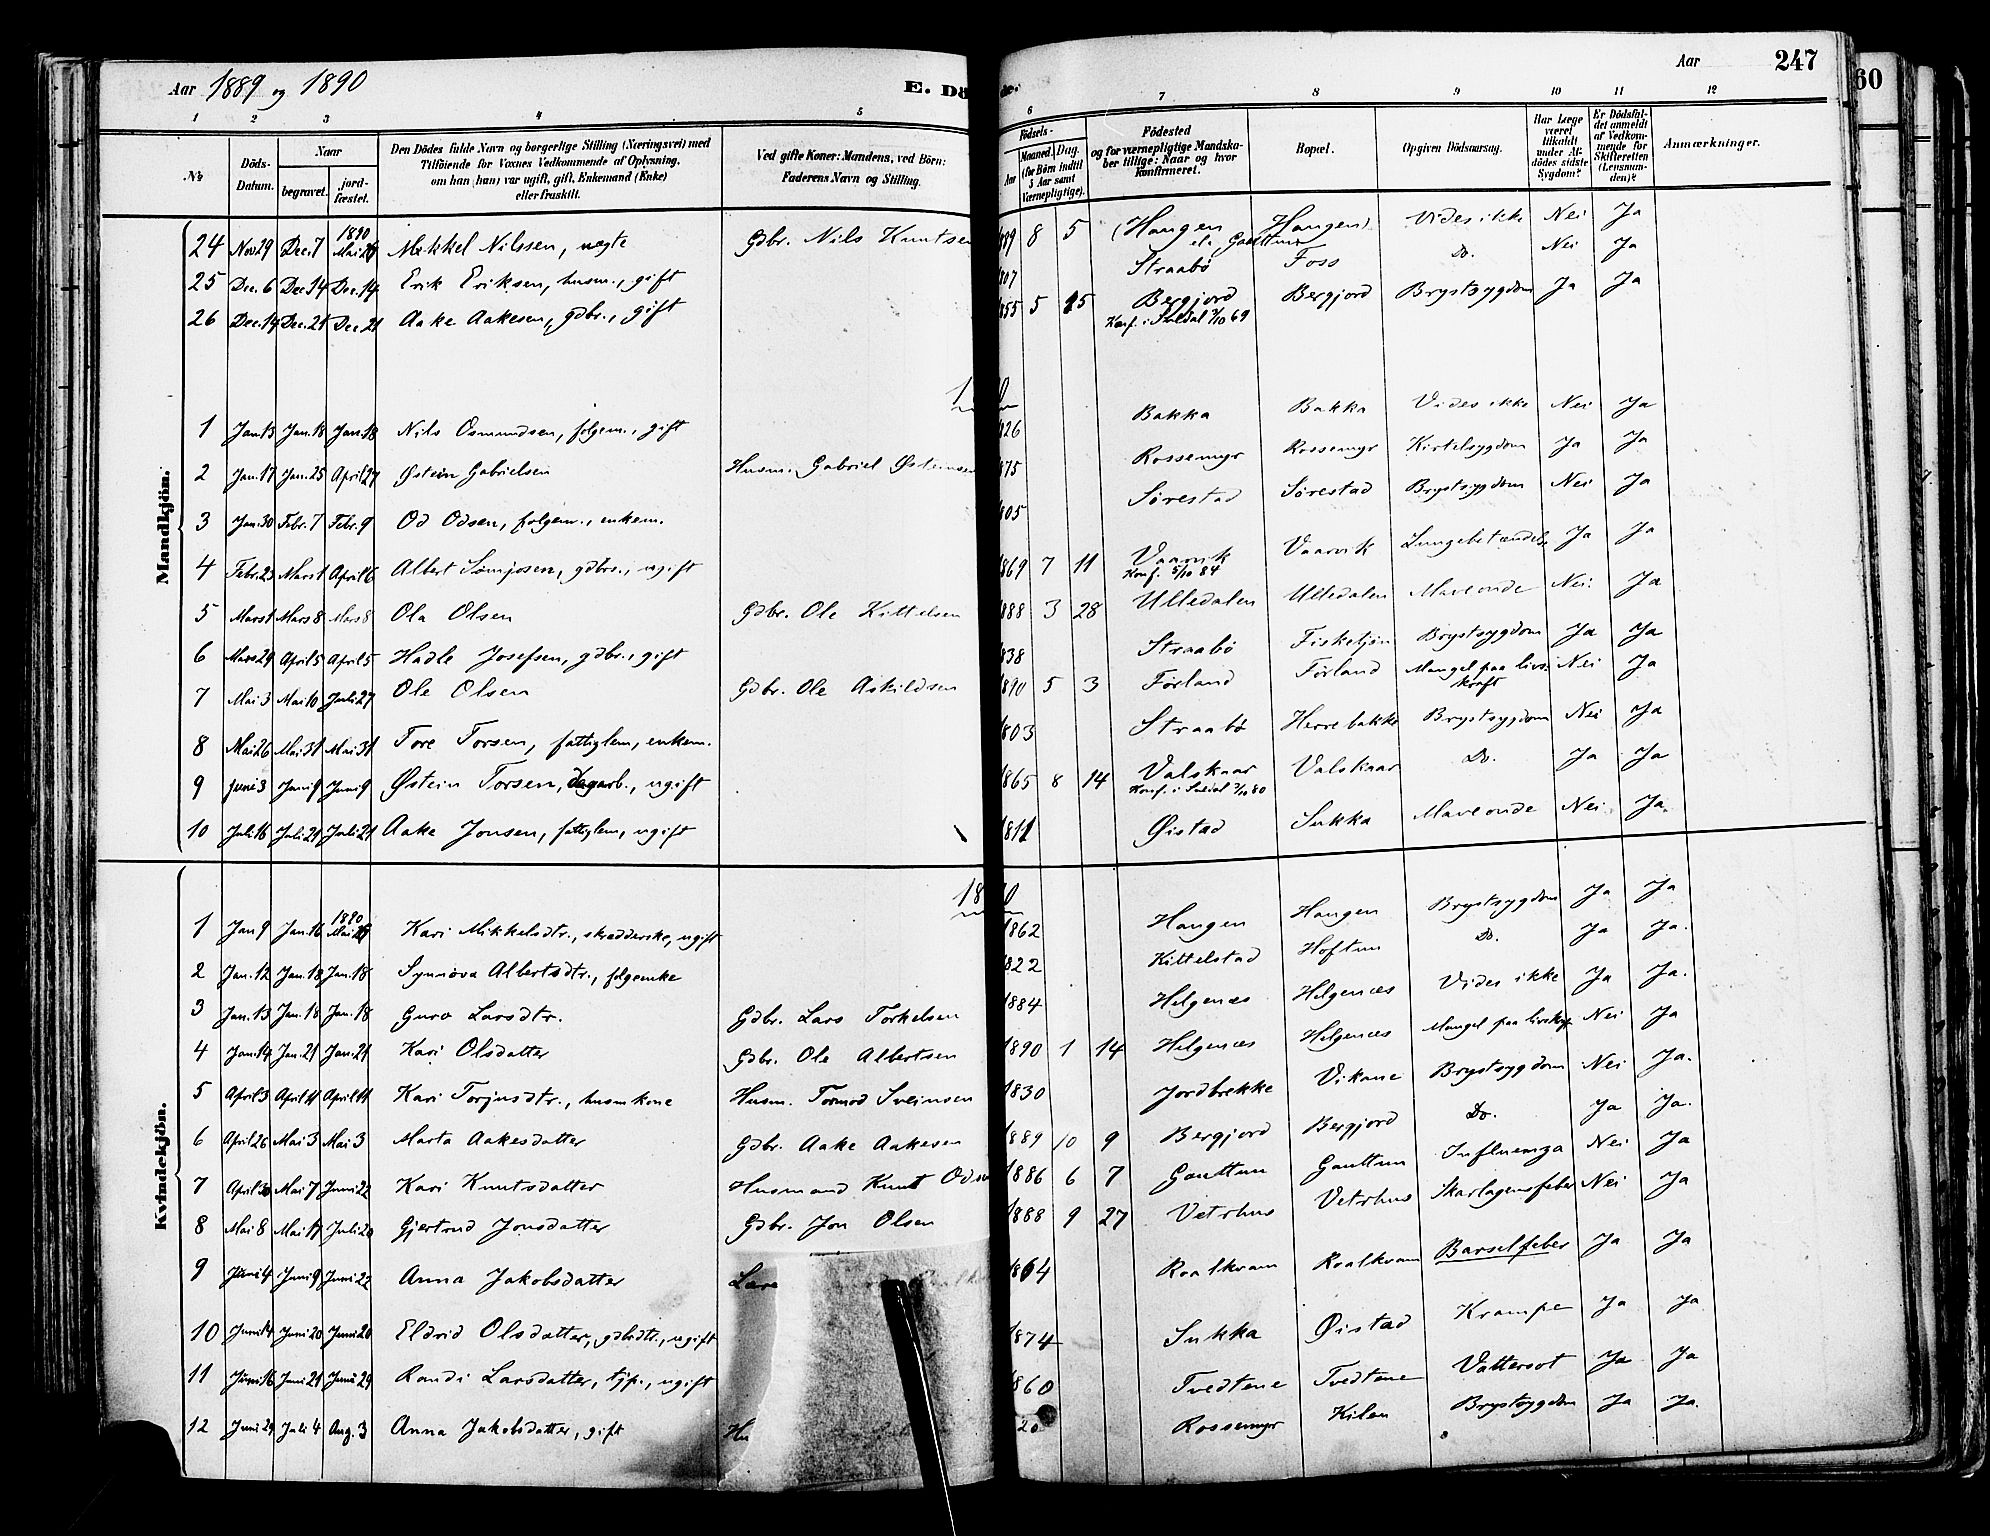 Aar 1889 og 1890 E. Dö Aar 247
60
1 2 3 4 5 6 7 8 9 10 11 12
№ Döds-Datum. Naar begravet. jord-fæstet. Den Dödes fulde Navn og borgerlige Stilling (Næringsvei) med Tilföiende for Voxnes Vedkommende af Oplysning, om han (hun) var ugift, gift, Enkemand (Enke) eller fraskilt. Ved gifte Koner: Mandens, ved Börn: Faderens Navn og Stilling. Födsels- Aar Maaned. Dag. (for Börn indtil 3 Aar samt Værnepligtige). Födested og for værnepligtige Mandskaber tillige: Naar og hvor Konfirmeret. Bopæl. Opgiven Dödsaarsag. Har Læge været tilkaldt under Afdödes sidste Sygdom? Er Dödsfaldet anmeldt af Vedkommende for Skifteretten (Lensmanden)? Anmærkninger.
Mandkjön.
24 Nov. 29 Dec. 7 1890 Mai 29 Mikkel Nilssen, uegte Gdbr. Nils Knutsen 889 8 5 (Haugen el. Gauttun Haugen) Vides ikke Nei Ja
25 Dec. 6 Dec. 14 Dec. 14 Erik Eriksen, husm., gift 807 Straabø Foss Do. Nei Ja
26 Dec. 14 Dec. 21 Dec. 21 Aake Aakesen, gdbr., gift 855 5 15 Bergjord Bergjord Brystsygdom Ja Ja
Konf. i Suldal 3/10 69
1 Jan. 13 Jan. 18 Jan. 18 Nils Osmundsen, folgem., gift 826 Bakka Bakka Vides ikke Nei Ja
2 Jan. 17 Jan. 25 April 27 Østein Gabrielsen Husm. Gabriel Østeinsen 875 Rossemyr Rossemyr Kirtelsygdom Ja Ja
3 Jan. 30 Febr. 7 Febr. 9 Od Odsen, folgem., enkem. 805 Sørestad Sørestad Brystsygdom Nei Ja
4 Febr. 23 Mars 1 April 6 Albert Sømjosen, gdbrs., ugift 1869 7 11 Vaarvik Vaarvik Lungebetændelse Ja Ja
Konf. 5/10 84
5 Mars 1 Mars 8 Mars 8 Ola Olsen Gdbr. Ole Kittelsen 1888 3 28 Ulledalen Ulledalen Maveonde Nei Ja
6 Mars 29 April 5 April 5 Hadle Josefsen, gdbr., gift 838 Straabø Fiskeljøn Brystsygdom Ja Ja
7 Mai 3 Mai 10 Juli 27 Ole Olsen Gdbr. Ole Askildsen 1890 5 3 Førland Førland Mangel paa livs-kraft Nei Ja
8 Mai 26 Mai 31 Mai 31 Tore Torsen, fattiglem, enkem. 1803 Straabø Herrebakke Brystsygdom Nei Ja
9 Juni 3 Juni 9 Juni 9 Østein Torsen, dagarb., ugift 1865 8 14 Valskaar Valskaar Do. Ja Ja
Konf. i Suldal 3/10 80
10 Juli 16 Juli 21 Juli 21 Aake Jonsen, fattiglem, ugift 1811 Øistad Sukka Maveonde Nei Ja.
Kvindekjön.
1 Jan 9 Jan. 16 1890 Mai 29 Kari Mikkelsdtr., skredderske, ugift 1862 Haugen Haugen Brystsygdom Ja Ja
2 Jan. 12 Jan. 18 Jan. 18 Synnøva Albertsdtr., folgenke 1822 Kittelstad Hoftun Do. Ja Ja.
3 Jan. 13 Jan. 18 Jan. 18 Guro Larsdtr. Gdbr. Lars Torkelsen 1884 Helgenæs Helgenæs Vides ikke Ja Ja.
4 Jan. 14 Jan. 21 Jan. 21 Kari Olsdatter Gdbr. Ole Albertsen 1890 1 14 Helgenæs Helgenæs Mangel paa livskraft Nei Ja
5 April 3 April 11 April 11 Kari Torjusdtr., husmkone Husm. Tormod Sveinsen 1830 Jordbrekke Vikane Brystsygdom Nei Ja.
6 April 26 Mai 3 Mai 3 Marta Aakesdatter Gdbr. Aake Aakesen 1889 10 9 Bergjord Bergjord Do. Ja Ja.
7 April 30 Mai 7 Juni 22 Kari Knutsdatter Husmand Knut Odsen 1886 6 7 Gauttun Gauttun Influenza Nei Ja
8 Mai 8 Mai 17 Juli 20 Gjertrud Jonsdatter Gdbr. Jon Olsen 1888 9 27 Vetrhus Vetrhus Skarlagensfeber Nei Ja
9 Juni 4 Juni 9 Juni 22 Anna Jakobsdatter Lære 1864 Roalkvam Roalkvam Barselfeber Ja Ja
10 Juni 14 Juni 20 Juni 20 Eldrid Olsdatter, gdbrdtr., ugift 1874 Sukka Øistad Krampe Ja Ja
11 Juni 16 Juni 21 Juni 29 Randi Larsdatter, tjp., ugift 1860 Tvedtene Tvedtene Vattersot Ja Ja
12 Juni 29 Juli 4 Aug. 3 Anna Jakobsdatter, gift Hu 20 Rossemyr Kilen Brystsygdom Ja Ja.